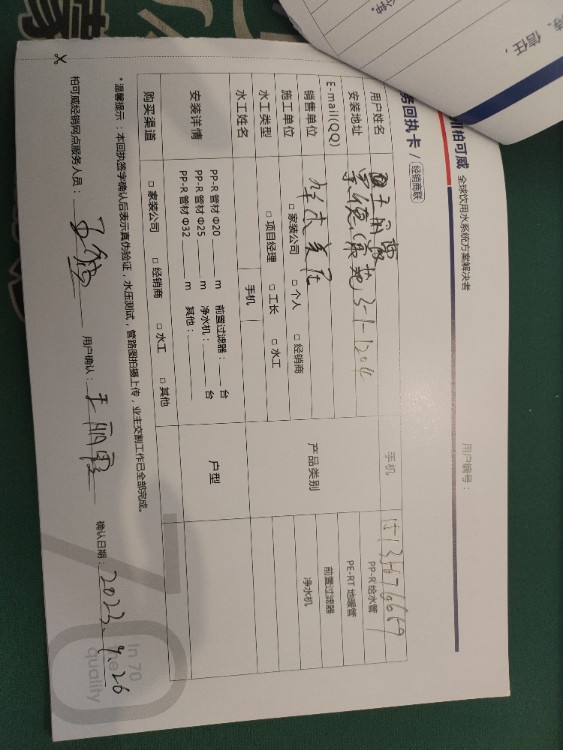 信任,
柏可威 全球饮用水系统方案解决者
用户编号:
务回执卡 / 经销商联
用户姓名
手机
安装地址 3-1-1204
E-mail(QQ)
销售单位
产品类别
PP-R 给水管
PE-RT 地暖管
前置过滤器
净水机
施工单位 □ 家装公司 □ 个人 □ 经销商
水工类型 □ 项目经理 □ 工长 □ 水工
水工姓名 手机
安装详情
PP-R 管材 Φ20 m 前置过滤器: 台
PP-R 管材 Φ25 m 净水机: 台
PP-R 管材 Φ32 m 其他:
户型
购买渠道 □ 家装公司 □ 经销商 □ 水工 □ 其他
*温馨提示:本回执签字确认后表示真伪验证,水压测试,管路图拍摄上传,业主交割工作已全部完成。
柏可威经销网点服务人员: 用户确认: 王丽霞 确认日期: 2023.9.26
70
In 70
quality